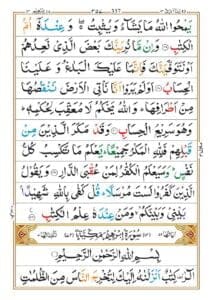 يَمْحُوا اللّٰهُ مَا يَشَآءُ وَيُثْبِتُ ۖ وَعِنْدَهٗۤ اُمُّ
الْكِتٰبِ ۝ وَاِنْ مَّا نُرِيَنَّكَ بَعْضَ الَّذِيْ نَعِدُهُمْ
اَوْ نَتَوَفَّيَنَّكَ فَاِنَّمَا عَلَيْكَ الْبَلٰغُ وَعَلَيْنَا
الْحِسَابُ ۝ اَوَلَمْ يَرَوْا اَنَّا نَاْتِي الْاَرْضَ نَنْقُصُهَا
مِنْ اَطْرَافِهَا ؕ وَاللّٰهُ يَحْكُمُ لَا مُعَقِّبَ لِحُكْمِهٖ ؕ
وَهُوَ سَرِيْعُ الْحِسَابِ ۝ وَقَدْ مَكَرَ الَّذِيْنَ مِنْ
قَبْلِهِمْ فَلِلّٰهِ الْمَكْرُ جَمِيْعًا ؕ يَعْلَمُ مَا تَكْسِبُ
كُلُّ نَفْسٍ ؕ وَسَيَعْلَمُ الْكُفّٰرُ لِمَنْ عُقْبَى الدَّارِ ۝ وَيَقُوْلُ
الَّذِيْنَ كَفَرُوْا لَسْتَ مُرْسَلًا ؕ قُلْ كَفٰى بِاللّٰهِ شَهِيْدًۢا
بَيْنِيْ وَبَيْنَكُمْ ۙ وَمَنْ عِنْدَهٗ عِلْمُ الْكِتٰبِ ۝
سُوْرَةُ اِبْرٰهِيْمَ مَكِّيَّةٌ
بِسْمِ اللّٰهِ الرَّحْمٰنِ الرَّحِيْمِ
الٓرٰ ۫ كِتٰبٌ اَنْزَلْنٰهُ اِلَيْكَ لِتُخْرِجَ النَّاسَ مِنَ الظُّلُمٰتِ